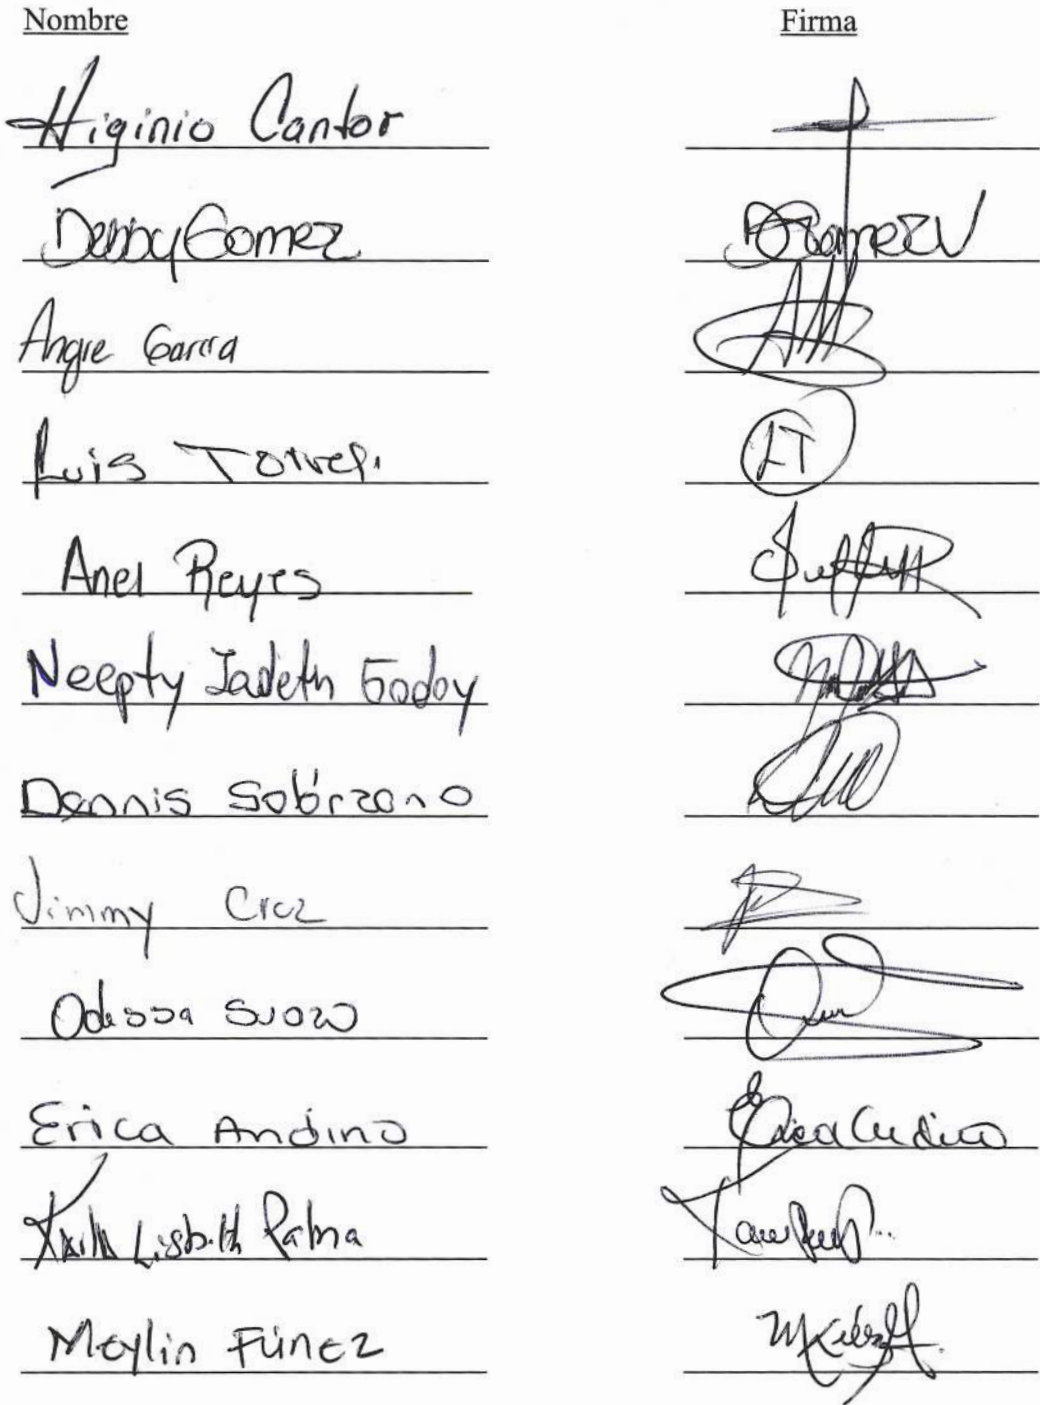 Nombre Firma
Higinio Cantor
Debby Gomez DGomezV
Angie Garcia
Luis Torres. LT
Anel Reyes
Neepty Jadeth Godoy
Dennis Solórzano
Jimmy Cruz
Odessa Suazo
Erica Andino Erica Andino
Karla Lisbeth Palma
Meylin Fúnez